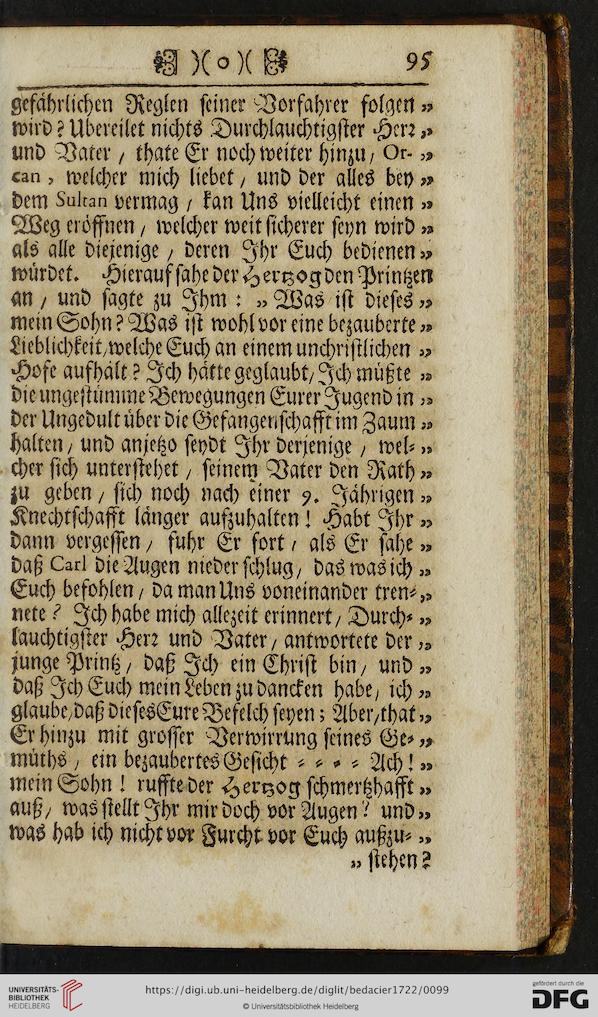 )( o )( 95
gefährlichen Reglen seiner Vorfahrer folgen „
wird? Ubereilet nichts Durchlauchtigster Herr „
und Vater / thate Er noch weiter hinzu / Or- „
can , welcher mich liebet / und der alles bey „
dem Sultan vermag / kan Uns vielleicht einen „
Weg eröffnen / welcher weit sicherer seyn wird „
als alle diejenige / deren Ihr Euch bedienen „
würdet. Hierauf sahe der Hertzog den Printzen
an / und sagte zu Ihm : „ Was ist dieses „
mein Sohn? Was ist wohl vor eine bezauberte „
Lieblichkeit/ welche Euch an einem unchristlichen „
Hofe aufhält? Ich hätte geglaubt/ Ich müßte „
die ungestümme Bewegungen Eurer Jugend in „
der Ungedult über die Gefangenschafft im Zaum „
halten / und anjetzo seydt Ihr derjenige / wel- „
cher sich unterstehet / seinem Vater den Rath „
zu geben / sich noch nach einer 9. Jährigen „
Knechtschafft länger aufzuhalten! Habt Ihr „
dann vergessen / fuhr Er fort / als Er sahe „
daß Carl die Augen nieder schlug / das was ich „
Euch befohlen / da man Uns voneinander tren- „
nete? Ich habe mich allezeit erinnert / Durch- „
lauchtigster Herr und Vater / antwortete der „
junge Printz / daß Ich ein Christ bin / und „
daß Ich Euch mein Leben zu dancken habe / ich „
glaube/ daß dieses Eure Befelch seyen ; Aber/ that „
Er hinzu mit grosser Verwirrung seines Ge- „
müths / ein bezaubertes Gesicht - - - - Ach! „
mein Sohn! ruffte der Hertzog schmertzhafft „
auß / was stellt Ihr mir doch vor Augen? und „
was hab ich nicht vor Furcht vor Euch außzu- „
„ stehen?
UNIVERSITÄTS-
BIBLIOTHEK
HEIDELBERG
https://digi.ub.uni-heidelberg.de/diglit/bedacier1722/0099
© Universitätsbibliothek Heidelberg
gefördert durch die
DFG